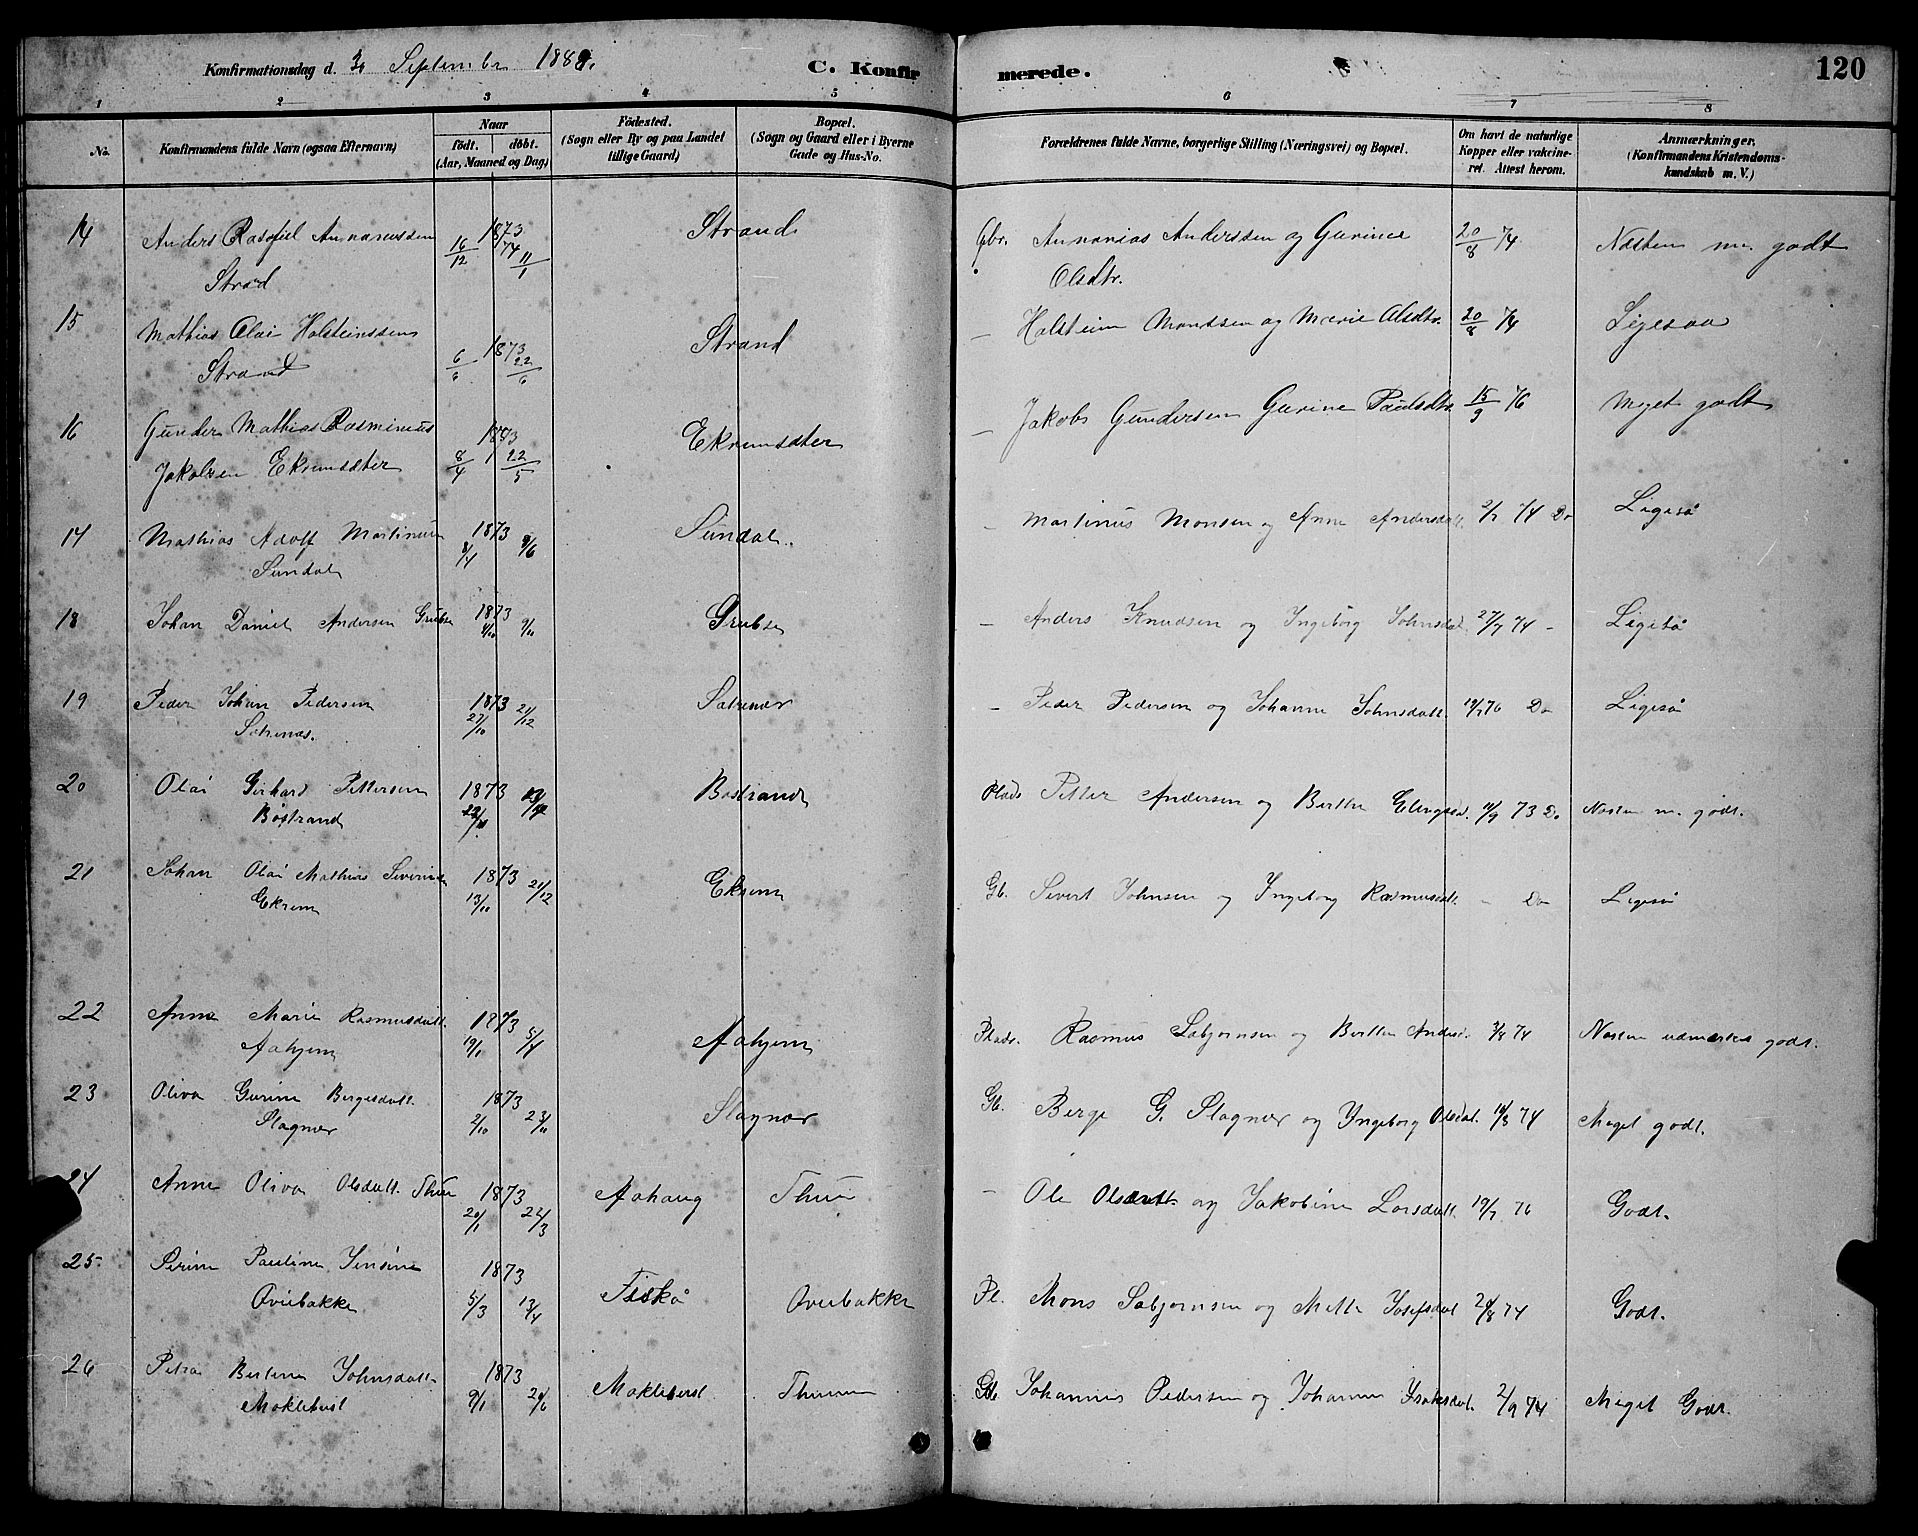 Konfirmationsdag d. 30 September 1888.
C. Konfirmerede.
120
1 2 3 4 5 6 7 8
No.
Konfirmandens fulde Navn (ogsaa Efternavn)
Naar
födt. döbt.
(Aar, Maaned og Dag)
Födested.
(Sogn eller By og paa Landet
tillige Gaard)
Bopæl.
(Sogn og Gaard eller i Byerne
Gade og Hus-No.
Forældrenes fulde Navne, borgerlige Stilling (Næringsvei) og Bopæl.
Om havt de naturlige
Kopper eller vakcine-
ret. Attest herom.
Anmærkninger.
(Konfirmandens Kristendoms-
kundskab m. V.)
14 Anders Annaniussen 1873 16/12 74 11/1 Strand Gbr. Annanias Anderssen og Gurine 20/8 74 Næsten m. godt
Strand Olsdtr.
15 Mathias Olai Holsteinssen 1873 6/6 22/6 Strand — Holstein Monssen og Marie Olsdtr. 20/8 74 Ligesaa
Strand
16 Gunder Mathias Rasminius 1873 8/4 22/5 Eksumsæter — Jakob Gundersen Gurine Paulsdtr. 15/9 76 Meget godt
Jakobsen Eksumsæter
17 Mathias Adolf Martinus 1873 8/4 8/6 Sundal — Martinus Monsen og Anne Andersdatt. 2/7 74 Do Ligeså
Sundal
18 Johan Daniel Andersen Grubse 1873 4/10 9/11 Grubse — Anders Knudsen og Ingeborg Johnsdat. 27/7 74 — Ligeså
19 Peder Johan Pedersen 1873 27/10 21/12 — Peder Pedersen og Johanne Johnsdatt. 19/7 76 Do Ligeså
20 Olai Gerhard Pettersen 1873 Båstrand Plads Petter Andersen og Berthe 11/9 73 Do Næsten m. godt.
Båstrand
21 Johan Olai Mathias Severinsen 1873 13/10 21/12 Eksem Gb. Sivert Johnsen og Ingeborg Rasmusdatt. — Do Ligeså
Eksem
22 Anne Marie Rasmusdatt. 1873 19/1 5/4 Aahjem Plads. Rasmus Sabjørnsen og Berthe Andersd. 3/8 74 Næsten udmærket godt.
Aahjem
23 Oliva Gurine Bergesdatt. 1873 2/10 23/11 Slagnær Gb. Berge G. Slagnær og Ingeborg Olsdat. 74 Meget godt.
Slagnær
24 Anne Oliva Olsdatt. Thue 1873 20/1 22/3 Aahaug Thue — Ole og Jakobine Larsdatt. 19/7 76 Godt.
25 Perine Pauline Jensine 1873 5/3 13/4 Fiskå Overbakke Pl. Mons Sabjørnsen og Mette Josefsdat 74 Godt.
Overbakke
26 Petra Bertine Johnsdatt. 1873 9/1 Moklebust Gb. Johannes Pedersen og Johanne Isaksdat. 2/9 74 Meget Godt.
Moklebust